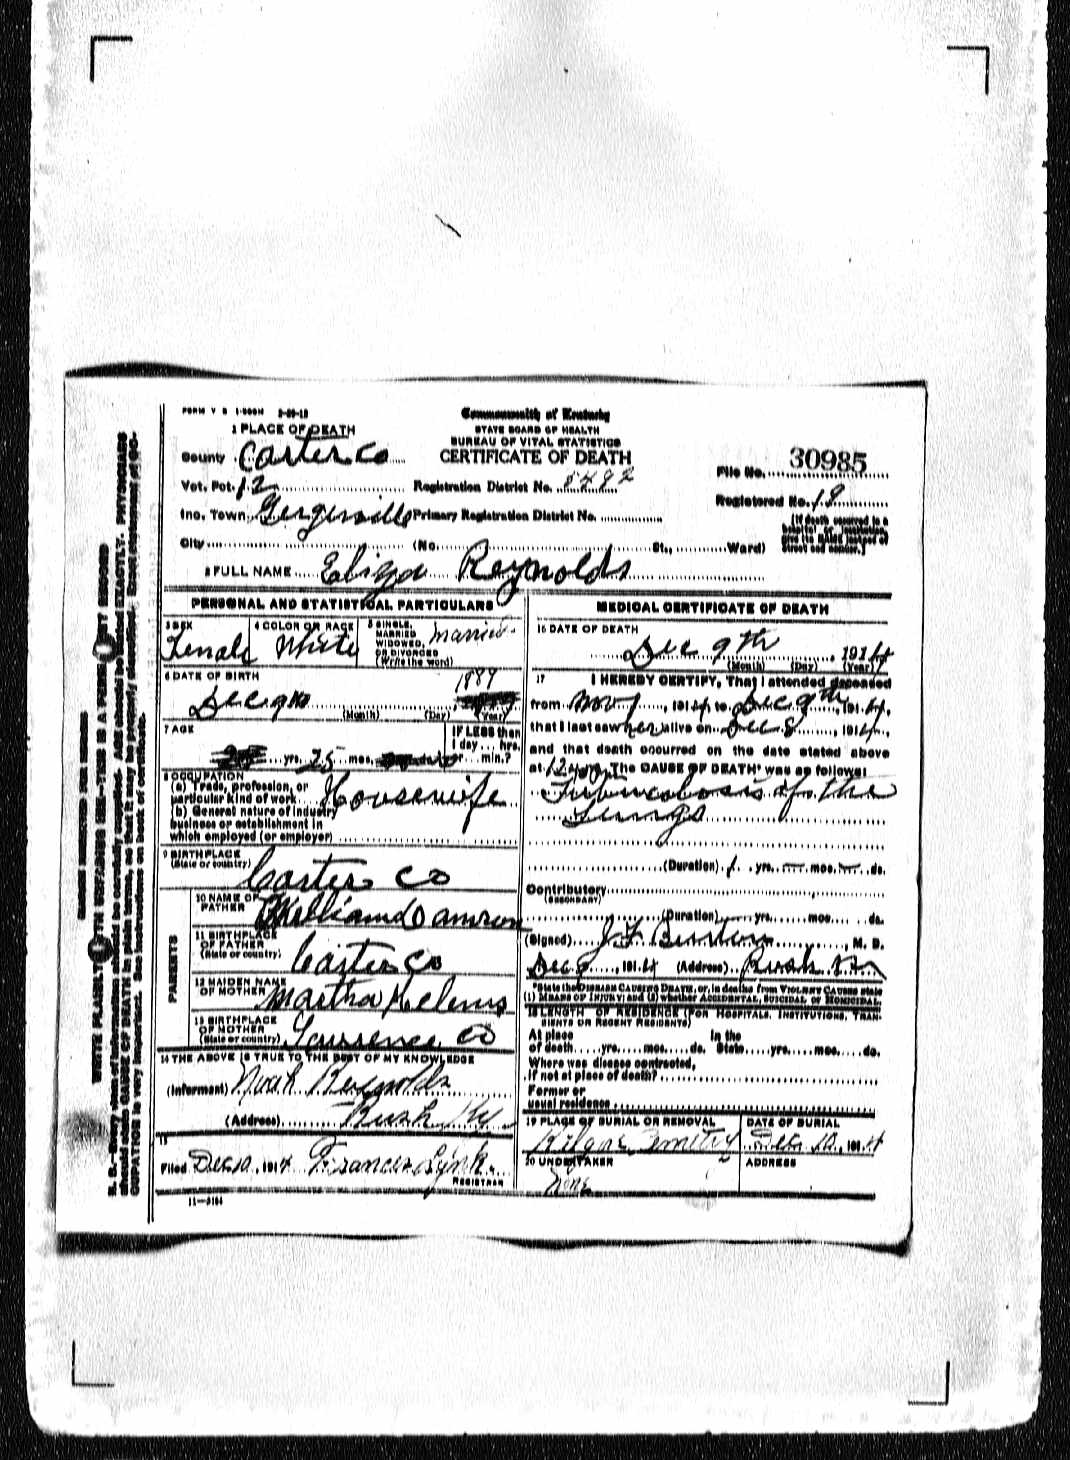 FORM V S 1-500M 2-20-12
Commonwealth of Kentucky
STATE BOARD OF HEALTH
BUREAU OF VITAL STATISTICS
CERTIFICATE OF DEATH
1 PLACE OF DEATH
County Carter Co
Vot. Pct. 12
Registration District No. 8492
File No. 30985
Registered No. 18
Inc. Town
Primary Registration District No.
City (No. St., Ward)
[If death occurred in a hospital or institution, give its NAME instead of street and number.]
2 FULL NAME Eliza Reynolds
PERSONAL AND STATISTICAL PARTICULARS
3 SEX Female
4 COLOR OR RACE White
5 SINGLE, MARRIED WIDOWED, OR DIVORCED (Write the word) Married
6 DATE OF BIRTH
Dec 9th 1889
(Month) (Day) (Year)
7 AGE
IF LESS than 1 day... hrs. or... min.?
yrs. 25 mos.
8 OCCUPATION
(a) Trade, profession, or particular kind of work Housewife
(b) General nature of industry business or establishment in which employed (or employer)
9 BIRTHPLACE (State or country) Carter Co
PARENTS
10 NAME OF FATHER William Damron
11 BIRTHPLACE OF FATHER (State or country) Carter Co
12 MAIDEN NAME OF MOTHER Martha
13 BIRTHPLACE OF MOTHER (State or country) Lawrence Co
14 THE ABOVE IS TRUE TO THE BEST OF MY KNOWLEDGE
(Informant) Noah Reynolds
(Address) Rush Ky
15
Filed Dec 10, 1914 Frances
REGISTRAR
11-3184
MEDICAL CERTIFICATE OF DEATH
16 DATE OF DEATH
Dec 9th, 1914
(Month) (Day) (Year)
17 I HEREBY CERTIFY, That I attended deceased
from Nov 1, 1914, to Dec 9th, 1914,
that I last saw her alive on Dec 8, 1914,
and that death occurred on the date stated above
at 12 The CAUSE OF DEATH* was as follows:
Tuberculosis of the
Lungs
(Duration) 1 yrs. — mos. — ds.
Contributory
(SECONDARY)
(Duration) yrs. mos. ds.
(Signed) J.F. M. D.
Dec 9, 1914 (Address) Rush Ky
*State the DISEASE CAUSING DEATH, or, in deaths from VIOLENT CAUSES state
(1) MEANS OF INJURY; and (2) whether ACCIDENTAL, SUICIDAL, or HOMICIDAL.
18 LENGTH OF RESIDENCE (FOR HOSPITALS, INSTITUTIONS, TRANSIENTS OR RECENT RESIDENTS)
At place of death yrs. mos. ds. In the State yrs. mos. ds.
Where was disease contracted, if not at place of death?
Former or usual residence
19 PLACE OF BURIAL OR REMOVAL Kilgore Cemetery
DATE OF BURIAL Dec 10, 1914
20 UNDERTAKER None
ADDRESS